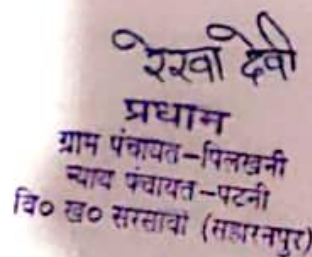 रेखा देवी
प्रधान
ग्राम पंचायत-पिलखनी
न्याय पंचायत-पटनी
वि० ख० सरसावां (सहारनपुर)